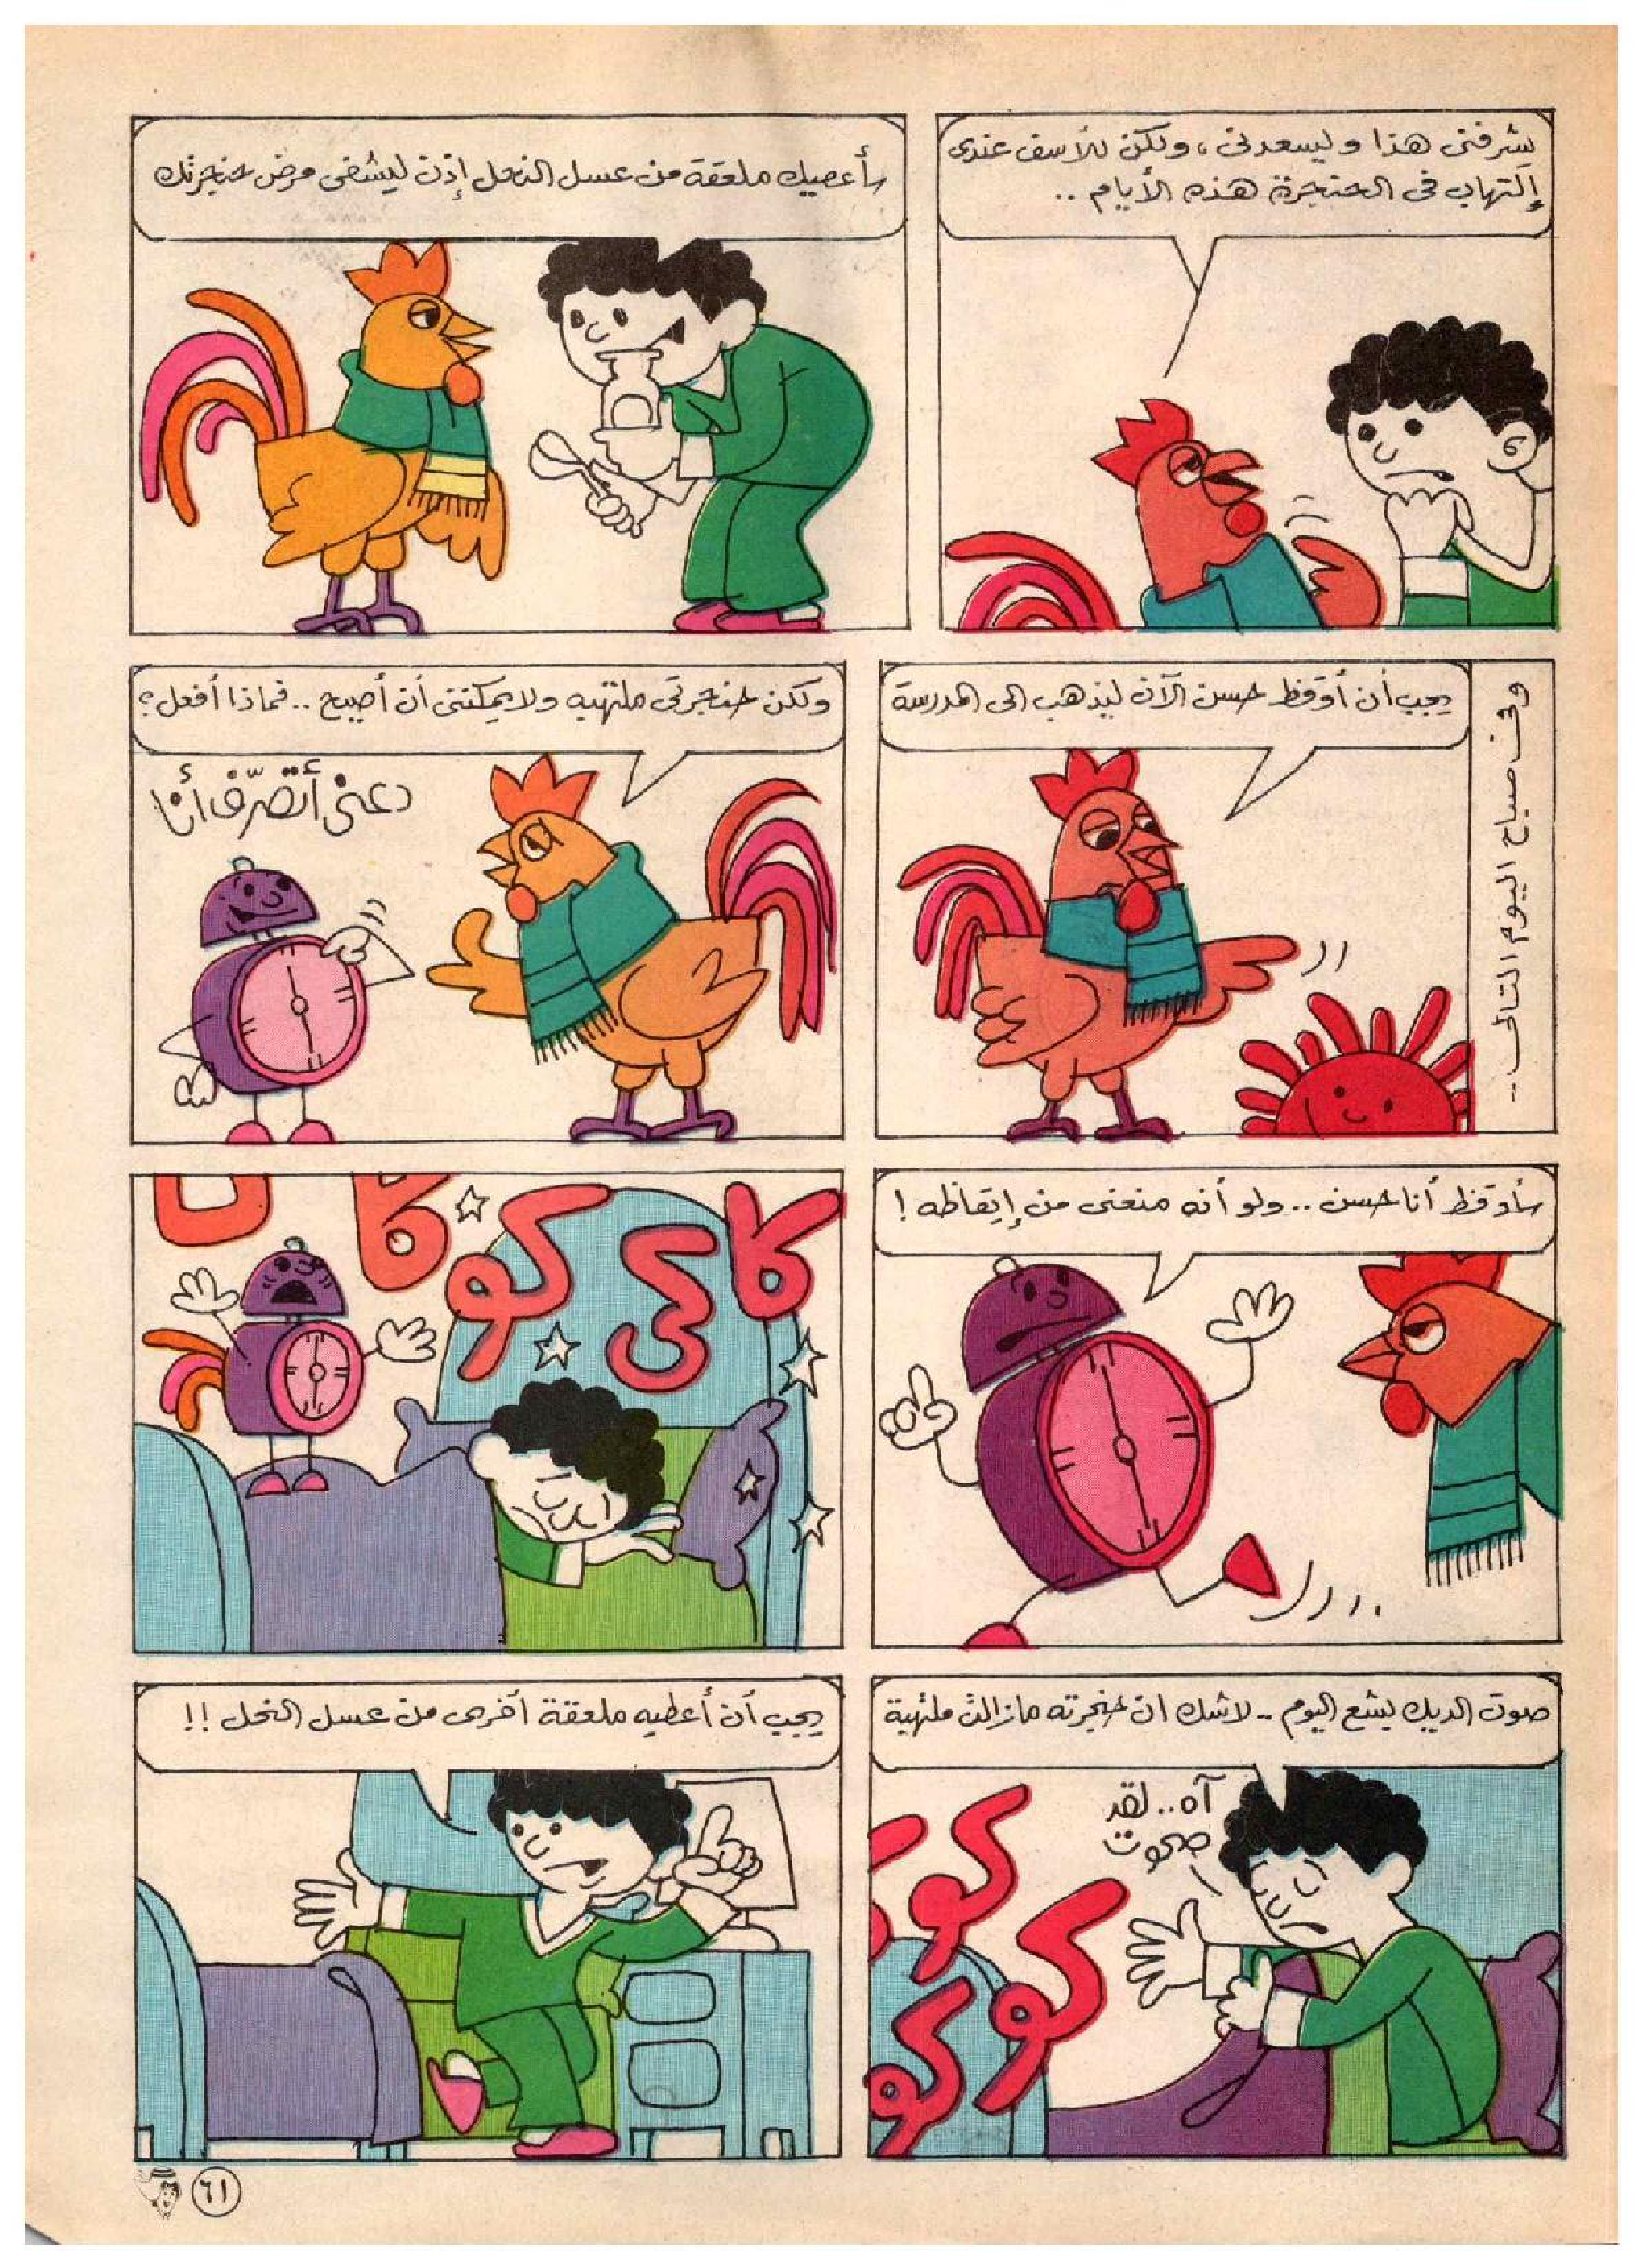 يشرفنى هذا ويسعدنى، ولكن للأسف عندى
إلتهاب فى الحنجرة هذه الأيام ..
سأعطيك ملعقة من عسل النحل إذن ليشفى مرض حنجرتك
وفى صباح اليوم التالى ..
يجب أن أوقظ حسن الآن ليذهب الى المدرسة
ولكن حنجرتى ملتهبه ولا يمكننى أن أصيح .. فماذا أفعل؟
دعنى أتصرّف أنا
سأوقظ أنا حسن .. ولو أنه منعنى من إيقاظه !
كاكى كو كا
صوت الديك بشع اليوم .. لاشك ان حنجرته مازالت ملتهبة
آه .. لقد
صحوت
كو
كو
كو
يجب أن أعطيه ملعقة أخرى من عسل النحل !!
٦١